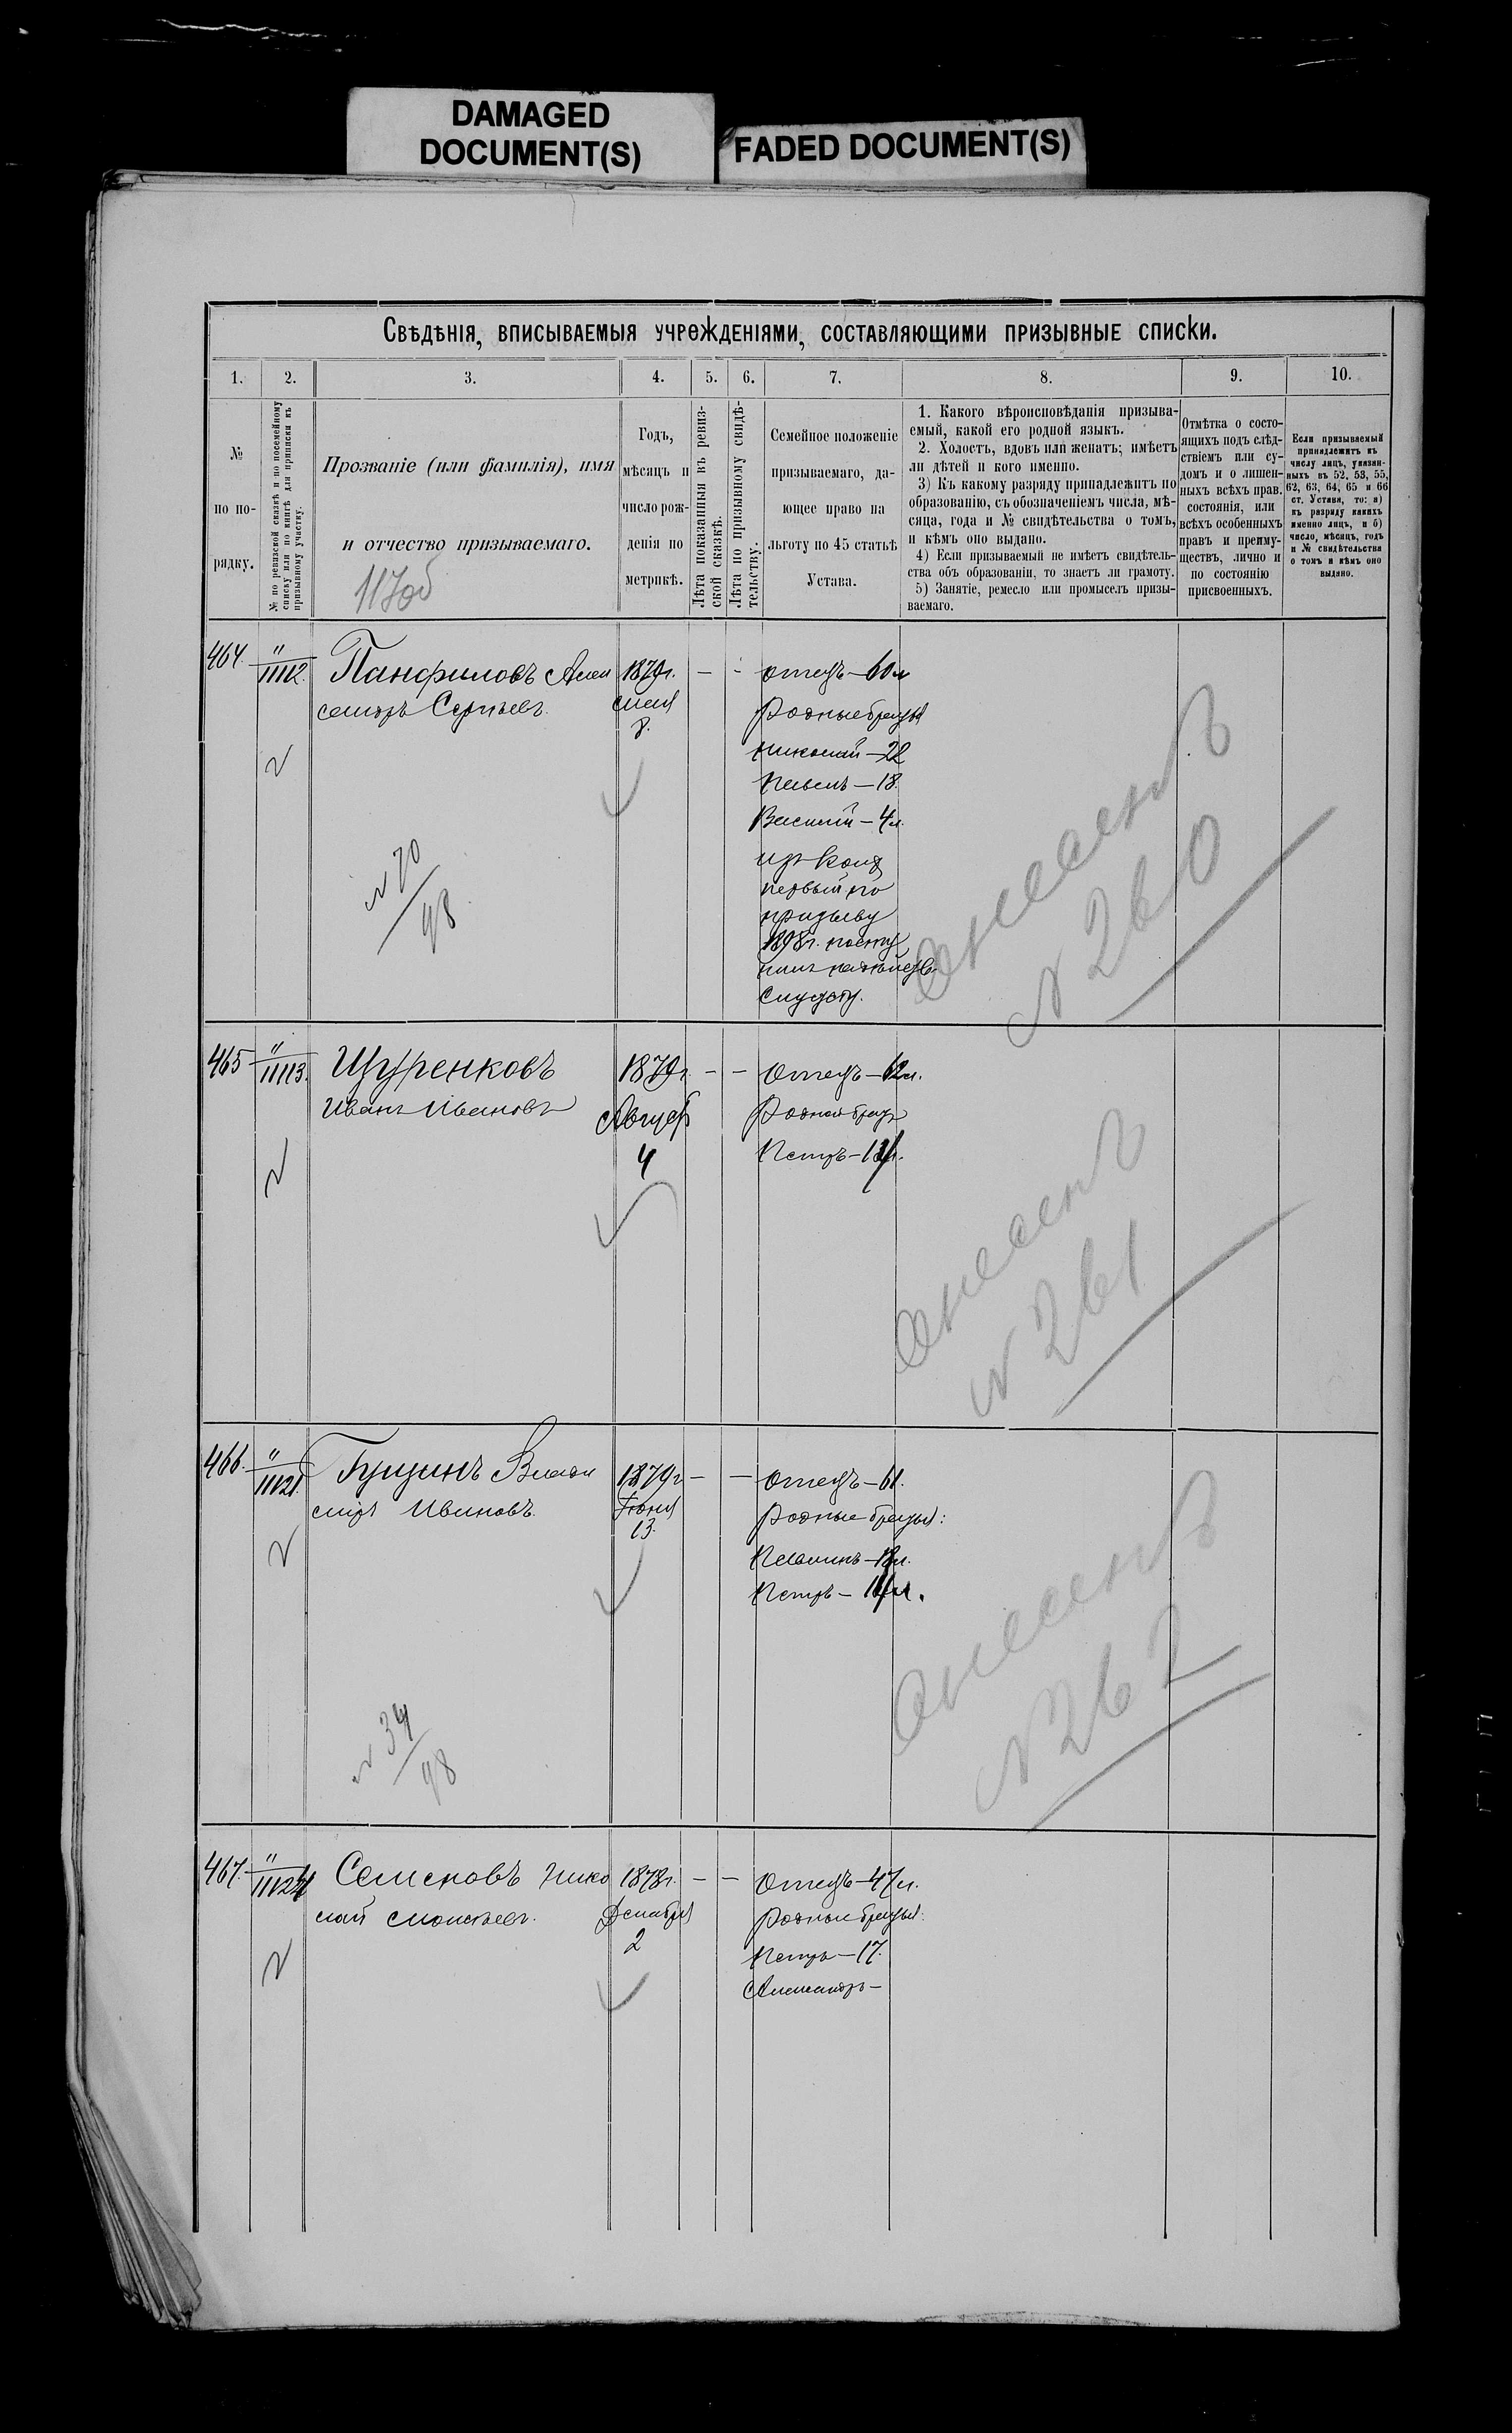 DAMAGED
DOCUMENT(S)
FADED DOCUMENT(S)
Свѣдѣнія, вписываемыя учрежденіями, составляющими призывные списки.
1.
2.
3.
4.
5.
6.
7.
8.
9.
10.
№
по по-
рядку.
№ по ревизской сказкѣ и по посемейному
списку или по книгѣ для приписки къ
призывному участку.
Прозваніе (или фамилія), имя
и отчество призываемаго.
Годъ,
мѣсяцъ и
число рож-
денія по
метрикѣ.
Лѣта показанныя въ ревиз-
ской сказкѣ.
Лѣта по призывному свидѣ-
тельству.
Семейное положеніе
призываемаго, да-
ющее право на
льготу по 45 статьѣ
Устава.
1. Какого вѣроисповѣданія призыва-
емый, какой его родной языкъ.
2. Холостъ, вдовъ или женатъ; имѣетъ
ли дѣтей и кого именно.
3) Къ какому разряду принадлежитъ по
образованію, съ обозначеніемъ числа, мѣ-
сяца, года и № свидѣтельства о томъ,
и кѣмъ оно выдано.
4) Если призываемый не имѣетъ свидѣтель-
ства объ образованіи, то знаетъ ли грамоту.
5) Занятіе, ремесло или промыселъ призы-
ваемаго.
Отмѣтка о состо-
ящихъ подъ слѣд-
ствіемъ или су-
домъ и о лишен-
ныхъ всѣхъ прав.
состоянія, или
всѣхъ особенныхъ
правъ и преиму-
ществъ, лично и
по состоянію
присвоенныхъ.
Если призываемый
принадлежитъ къ
числу лицъ, указан-
ныхъ въ 52, 53, 55,
62, 63, 64, 65 и 66
ст. Устава, то: а)
къ разряду какихъ
именно лицъ, и б)
число, мѣсяцъ, годъ
и № свидѣтельства
о томъ и кѣмъ оно
выдано.
464.
"
11112.
Панфиловъ Алек
сандръ Сергѣевъ.
1879г.
Мая
8.
отецъ—60л
Родные братья
Николай—22
Павелъ—18.
Василій—4л.
изъ коихъ
первый по
призыву
1898г.
службу.
№ 70
98
№ 260
465
"
11113.
Щуренковъ
Иванъ Ивановъ
1879г.
Август
4
Отецъ—62л.
Родной братъ
Петръ—
№ 261
466.
"
11121.
Гущинъ Влади
міръ Ивановъ.
1879г
Іюня
13.
Отецъ—61.
Родные братья:
Петръ—
№ 34
98
№ 262
467.
"
Семеновъ Нико
лай
1878г.
Декабря
2
Отецъ—47л.
Родные братья.
Петръ—17.
Александръ—